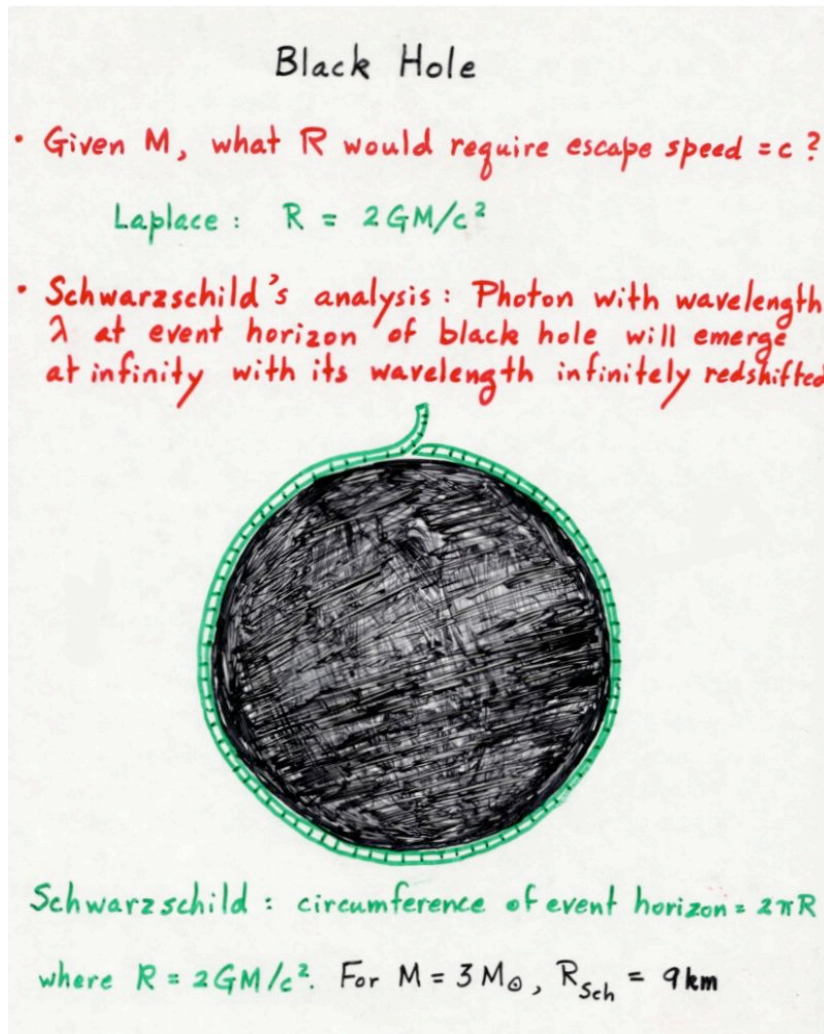 Black Hole
• Given M, what R would require escape speed = c ?
Laplace : R = 2GM/c²
• Schwarzschild's analysis : Photon with wavelength
λ at event horizon of black hole will emerge
at infinity with its wavelength infinitely redshifted
Schwarzschild : circumference of event horizon = 2πR
where R = 2GM/c². For M = 3M☉, R_Sch = 9km